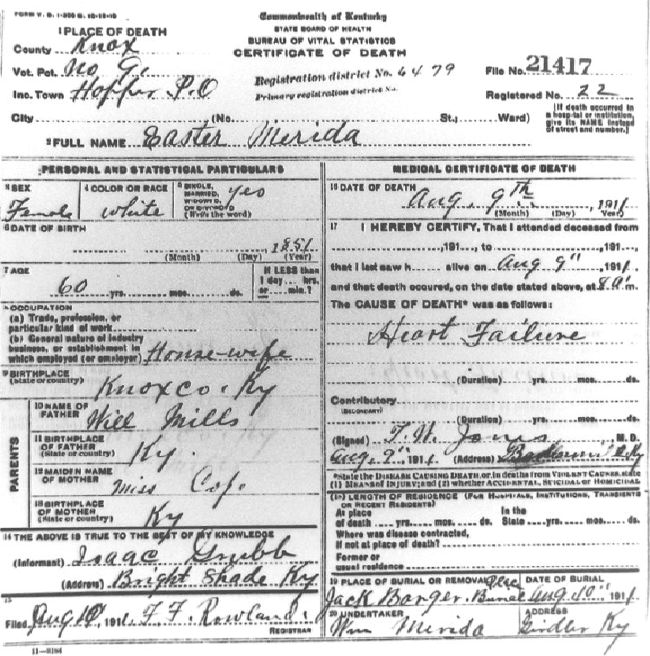 FORM V. S. 1-
Commonwealth of Kentucky
STATE BOARD OF HEALTH
BUREAU OF VITAL STATISTICS
CERTIFICATE OF DEATH
1 PLACE OF DEATH
County Knox
Vot. Pct. No 9.
Inc. Town Hopper P.O
Registration district No. 6479
Primary registration district No.
File No. 21417
Registered No. 22
City (No. St.; Ward)
[If death occurred in a hospital or institution, give its NAME instead of street and number.]
2 FULL NAME Easter Merida
PERSONAL AND STATISTICAL PARTICULARS
3 SEX Female
4 COLOR OR RACE white
5 SINGLE, MARRIED, WIDOWED, OR DIVORCED (Write the word) yes
6 DATE OF BIRTH
, 1851
(Month) (Day) (Year)
7 AGE
60 yrs. mos. ds.
If LESS than 1 day hrs. or min.?
8 OCCUPATION
(a) Trade, profession, or
particular kind of work
(b) General nature of industry
business, or establishment in
which employed (or employer) House-wife
9 BIRTHPLACE
(State or country)
Knox co. Ky
PARENTS
10 NAME OF FATHER
Will Mills
11 BIRTHPLACE OF FATHER
(State or country) Ky.
12 MAIDEN NAME OF MOTHER
Miss
13 BIRTHPLACE OF MOTHER
(State or country) Ky
14 THE ABOVE IS TRUE TO THE BEST OF MY KNOWLEDGE
(Informant) Isaac Grubb
(Address) Bright Shade Ky
15
Filed Aug 191 F. F. Rowland
REGISTRAR
11-3184
MEDICAL CERTIFICATE OF DEATH
16 DATE OF DEATH
Aug. 9th. 1911
(Month) (Day) (Year)
17 I HEREBY CERTIFY, That I attended deceased from
, 191 , to , 191 ,
that I last saw h alive on Aug 9" , 1911,
and that death occurred, on the date stated above, at m.
The CAUSE OF DEATH* was as follows:
Heart Failure
(Duration) yrs. mos. ds.
Contributory
(SECONDARY)
(Duration) yrs. mos. ds.
(Signed) T. W. Jones M. D.
Aug. 9" 1911 (Address) Ky
*State the DISEASE CAUSING DEATH, or, in deaths from VIOLENT CAUSES, state
(1) MEANS OF INJURY; and (2) whether ACCIDENTAL, SUICIDAL or HOMICIDAL
18 LENGTH OF RESIDENCE (FOR HOSPITALS, INSTITUTIONS, TRANSIENTS
OR RECENT RESIDENTS)
At place of death yrs. mos. ds. In the State yrs. mos. ds.
Where was disease contracted,
If not at place of death?
Former or
usual residence
19 PLACE OF BURIAL OR REMOVAL
Jack Barger
DATE OF BURIAL
Aug. 10" 1911
20 UNDERTAKER
Wm Merida
ADDRESS
Girdler Ky